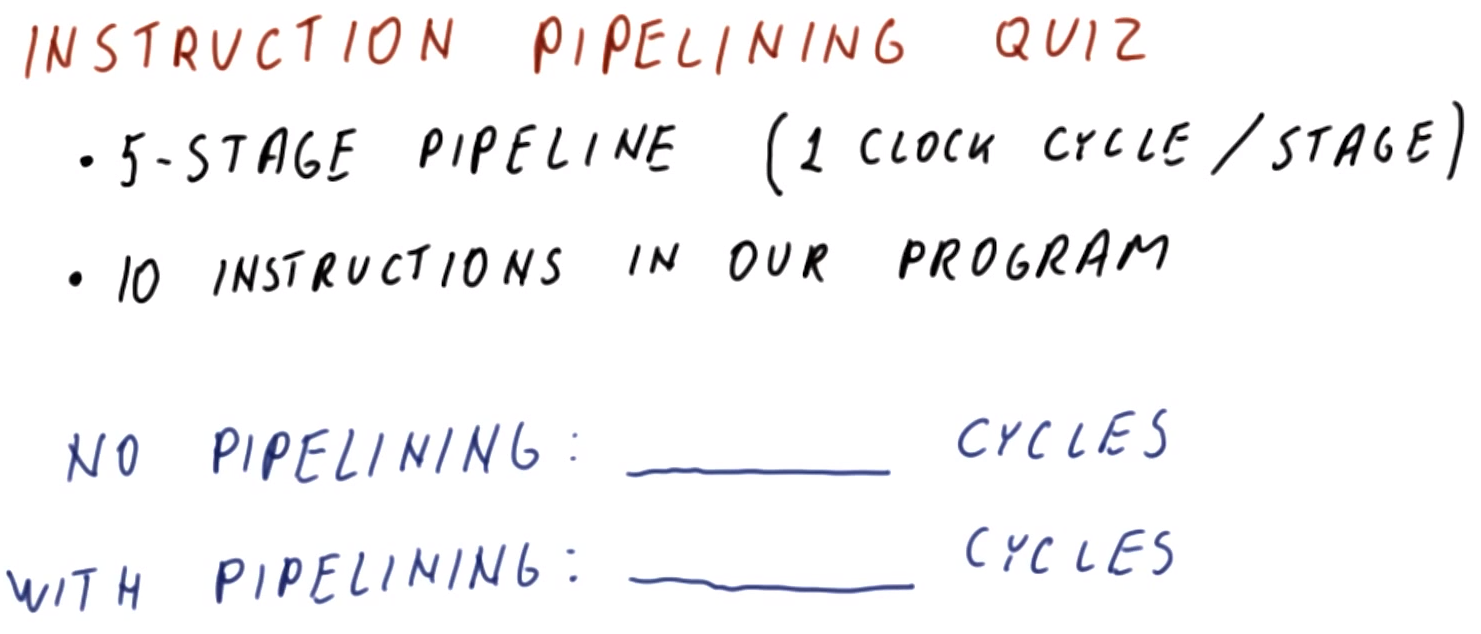 INSTRUCTION PIPELINING QUIZ
• 5-STAGE PIPELINE (1 CLOCK CYCLE / STAGE)
• 10 INSTRUCTIONS IN OUR PROGRAM
NO PIPELINING: ________ CYCLES
WITH PIPELINING: ________ CYCLES